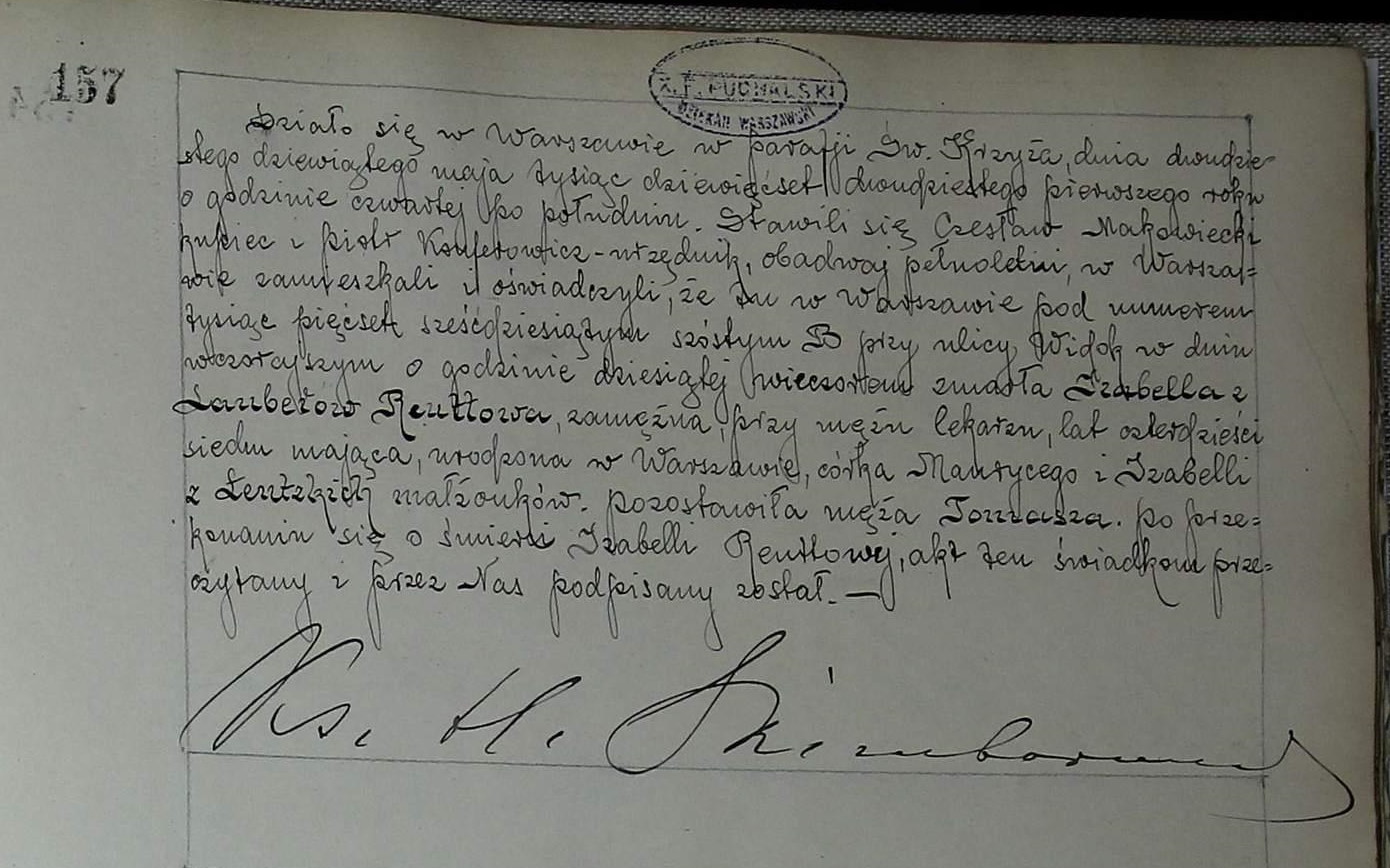 157
X. F. PUCHALSKI
DZIEKAN WARSZAWSKI
Działo się w Warszawie w parafji Św. Krzyża, dnia dwudzie-
stego dziewiątego maja tysiąc dziewięćset dwudziestego pierwszego roku
o godzinie czwartej po południu. Stawili się Czesław Makowiecki
kupiec i Piotr - urzędnik, obadwaj pełnoletni, w Warsza=
wie zamieszkali i oświadczyli, że tu w Warszawie pod numerem
tysiąc pięćset sześćdziesiątym szóstym B przy ulicy Widok w dniu
wczorajszym o godzinie dziesiątej wieczorem zmarła Izabella z
Lauberów Reuttowa, zamężna, przy mężu lekarzu, lat czterdzieści
siedm mająca, urodzona w Warszawie, córka Maurycego i Izabelli
z małżonków. pozostawiła męża Tomasza. po prze=
konaniu się o śmierci Izabelli Reuttowej, akt ten świadkom prze=
czytany i przez Nas podpisany został. —
Ks. H.